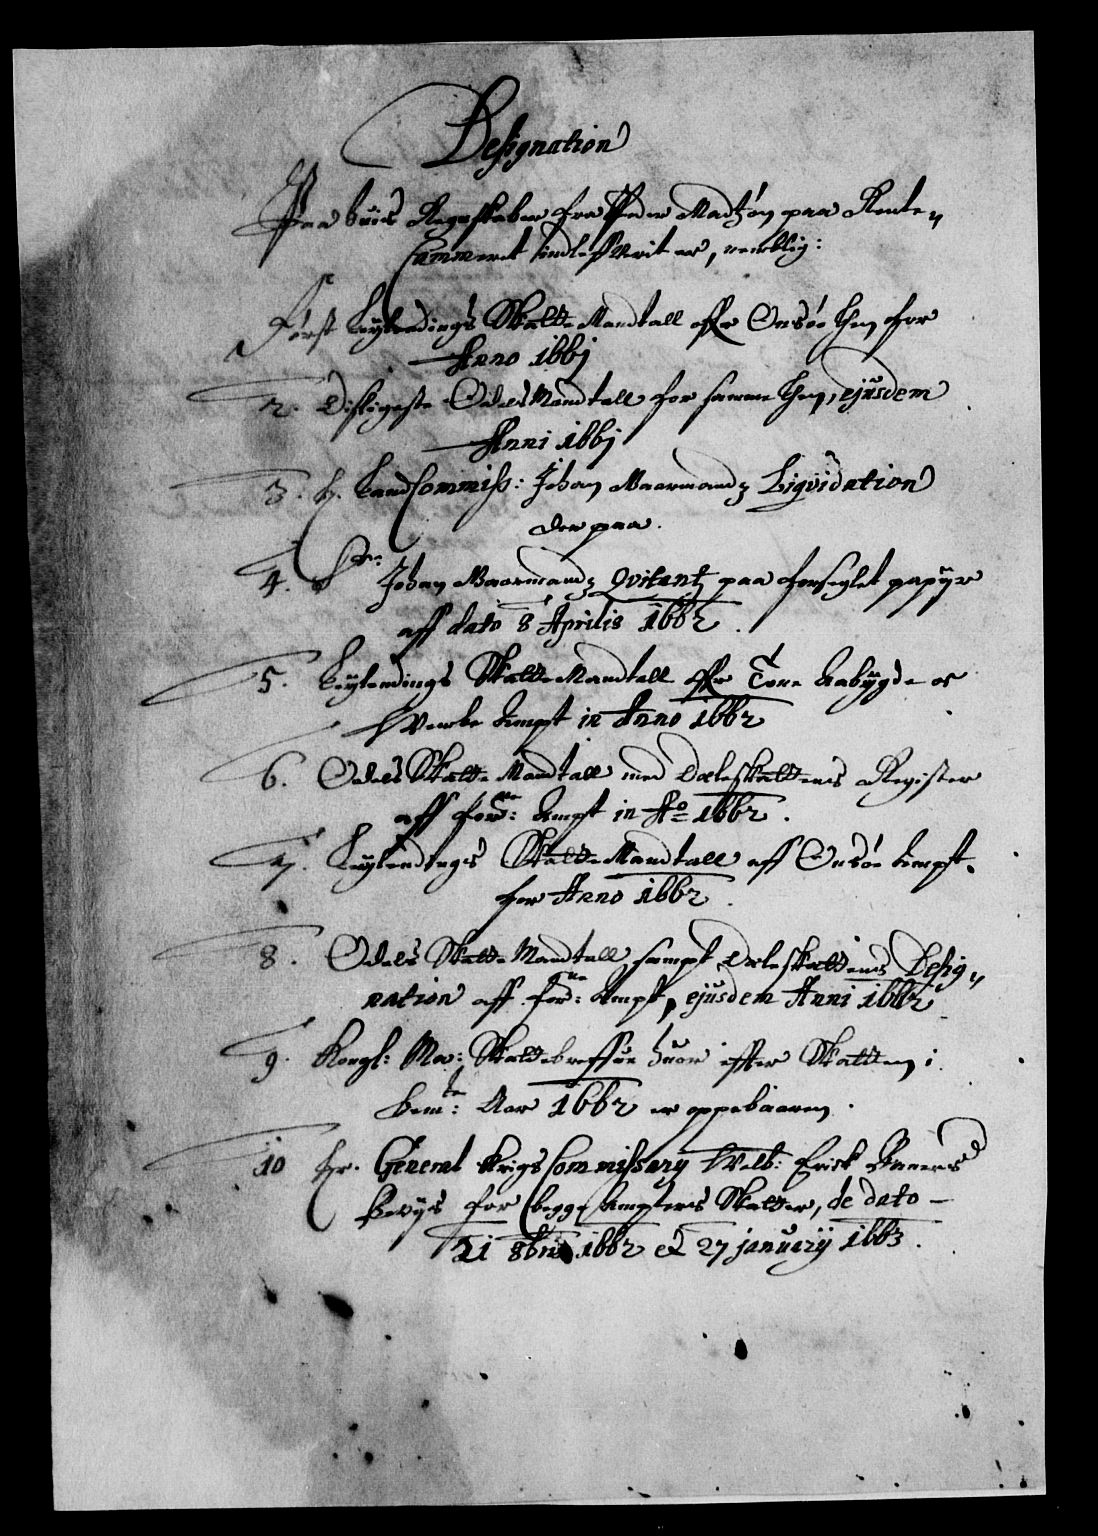 Designation
Paa huis Regenskaber fra Peder Madtzøn paa Rente„
Cammeret indlefverit er, nemblig:
Først Leylendings Skatte Mandtall offr Onsøe Lhen for
Anno 1661
2. Disligeste Odels Mandtall for samme Lhen, ejusdem
Anni 1661
3. H. Landcommiss: Johan Maarmandz Liqvidation
der paa.
4. Johan Maarmandz Qvitantz paa forseglet papijr
aff dato 8 Aprilis 1662.
5. Leylendings Skatte Mandtall offr Tone Aabÿgde oc
Verke Ampt in Anno 1662
6. Odels Skatte Mandtall med Dæleskattens Register
aff forne: Ampt in Ao 1662.
7. Leylendings Skatte Mandtall aff Onsøe Ampt.
for Anno 1662.
8. Odels Skatte Mandtall sampt Dæleskattens Desig„
nation aff forne: Ampt, ejusdem Anni 1662
9. Kongl: Ma: Skattebreffue huor effter Skatten i
bemte: Aar 1662 er oppebaaren.
10 Hr. General Krigs Commissary Welb: Erick Baners
Bevÿs for begge Ampters Skatter, de dato –
21 8bris 1662 et 27 januarij 1663.